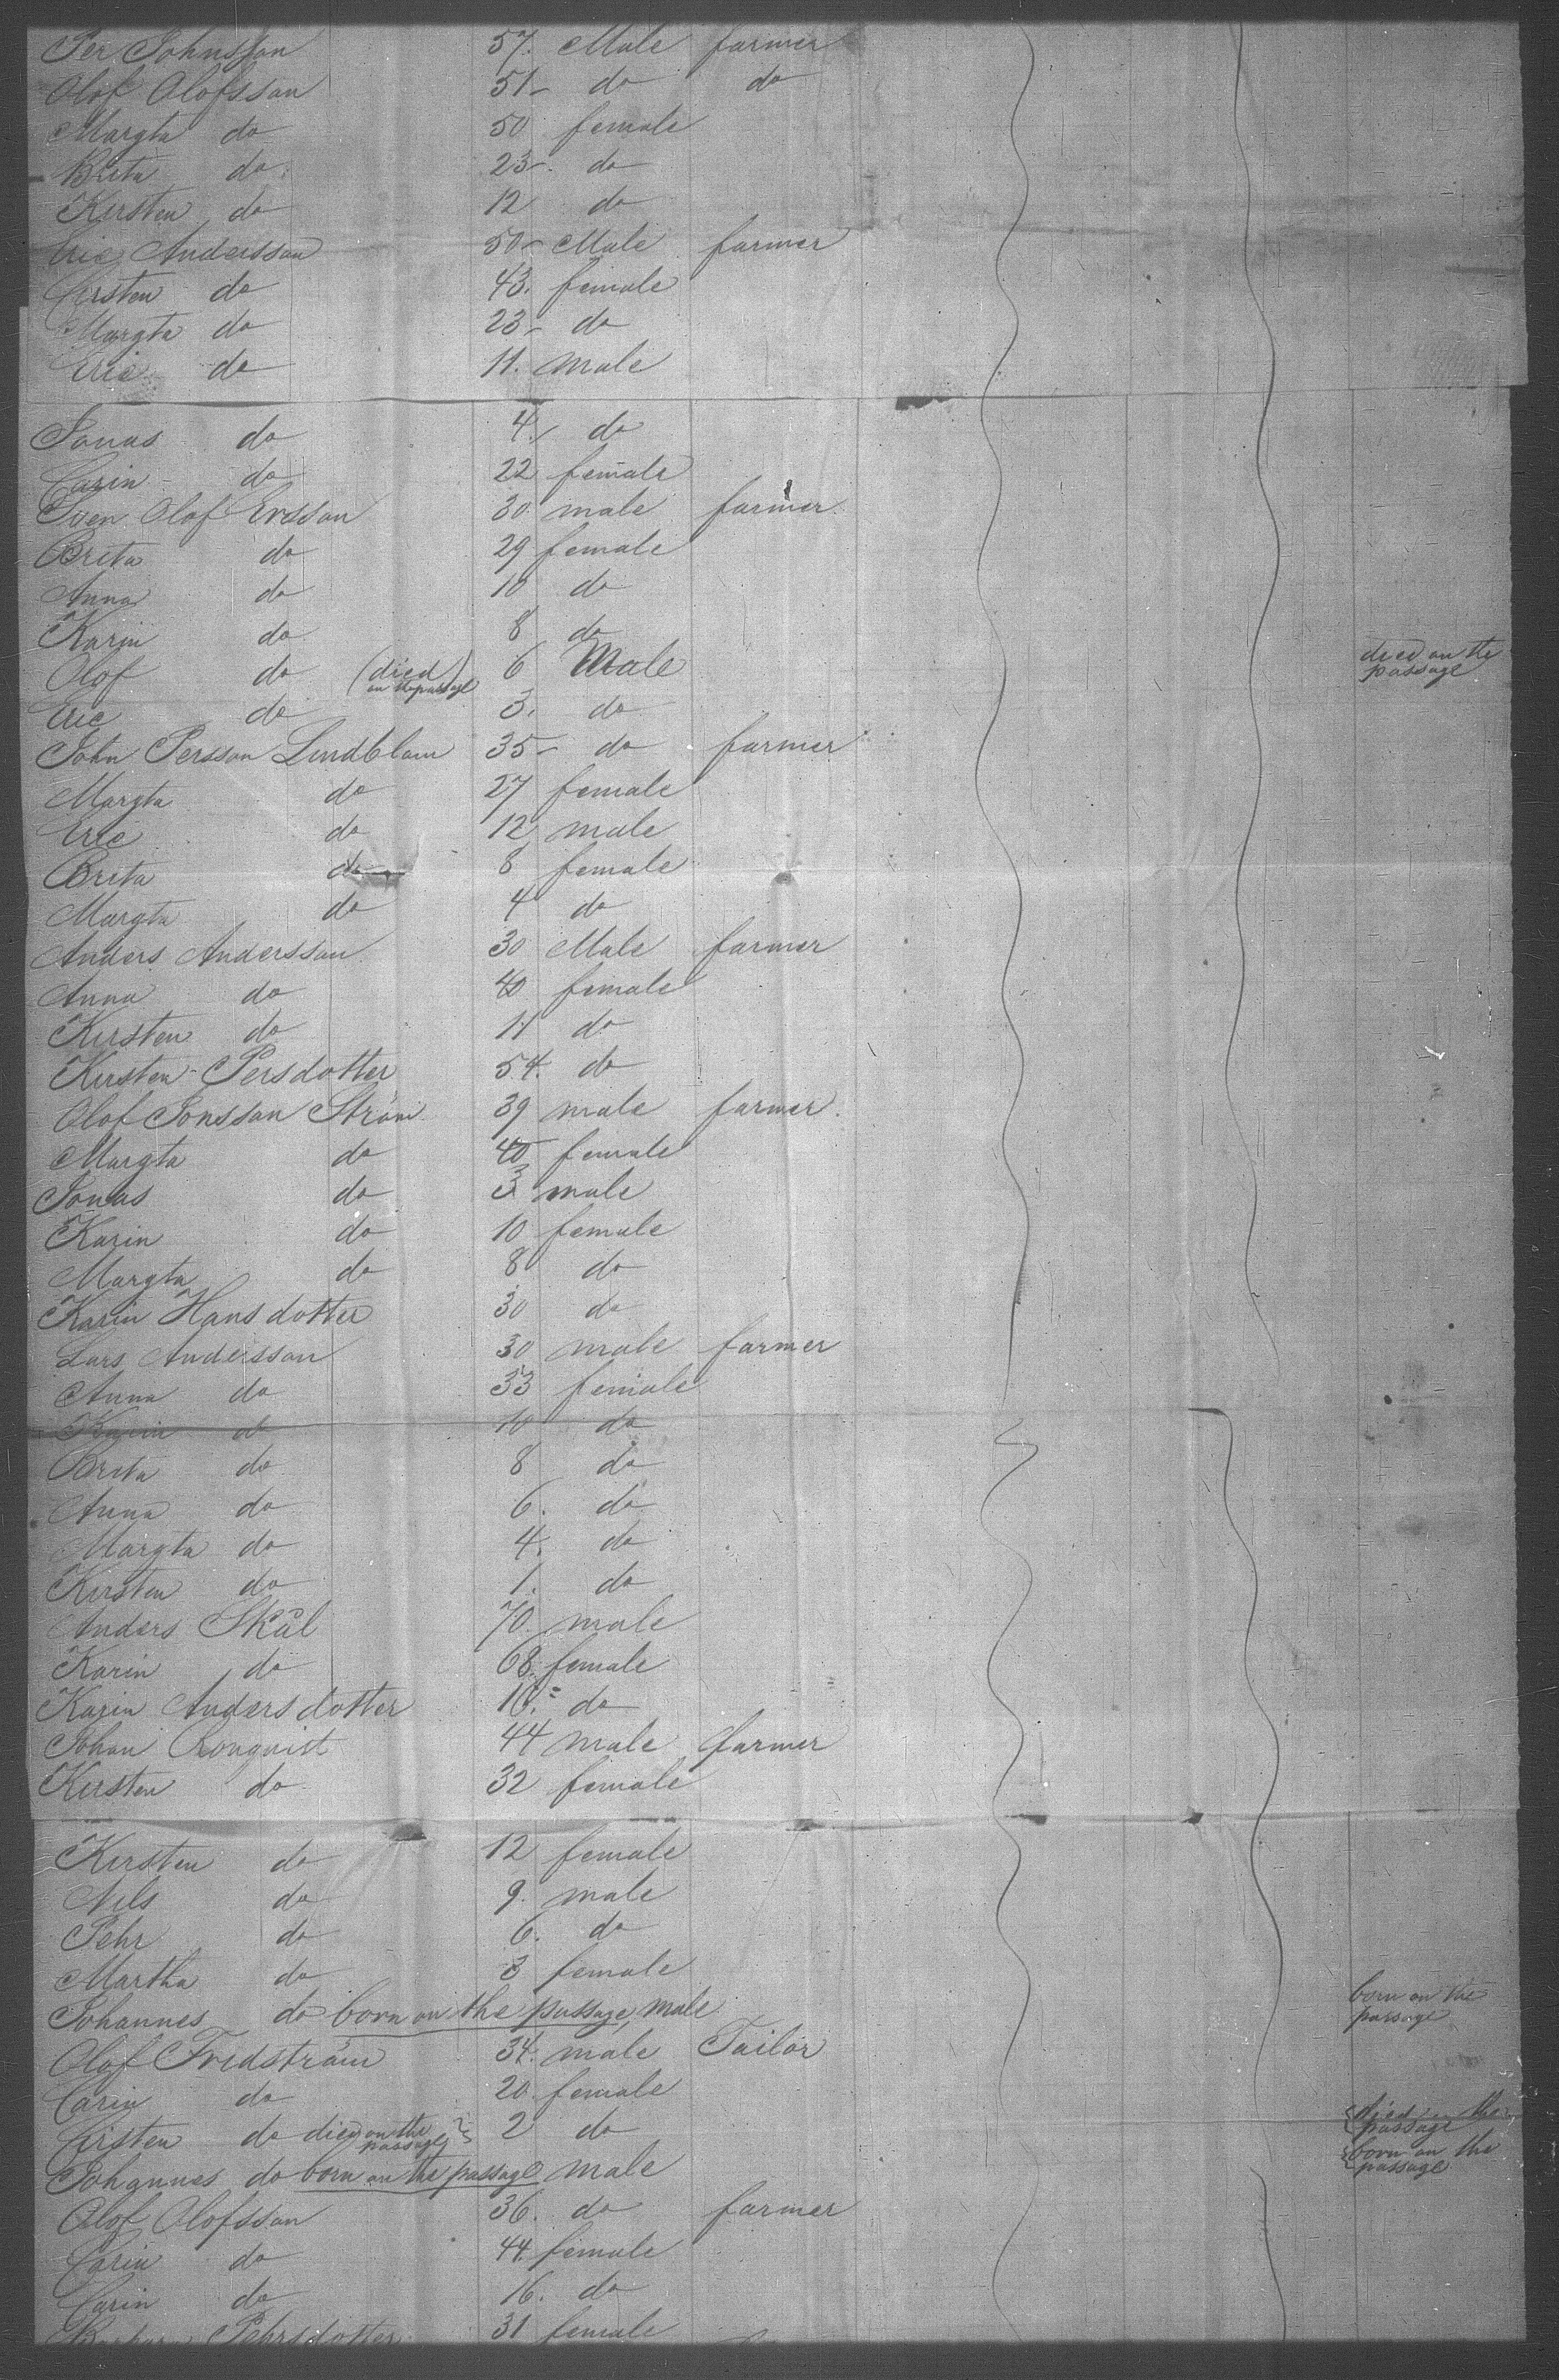 Per Johnsson 57. Male farmer
Olof Olofsson 51 - do do
Margta do 50 female
Brita do 23 - do
Kersten do 12 do
Eric Andersson 50 - Male farmer
Cersten do 43. female
Margta do 23 - do
Eric do 11. male
Jonas do 4. do
Carin do 22 female
Sven Olof Ersson 30 male farmer
Brita do 29 female
Anna do 10 do
Karin do 8 do
Olof do (died on the passage) 6 Male died on the passage
Eric do 3. do
John Persson Lindblom 35 - do farmer
Margta do 27 female
Eric do 12 male
Brita do 8 female
Margta do 4 do
Anders Andersson 30 Male farmer
Anna do 40 female
Kersten do 11 do
Kersten Persdotter 54. do
Olof Jonsson Ström 39 male farmer
Margta do 40 female
Jonas do 3 male
Karin do 10 female
Margta do 8 do
Karin Hansdotter 30 do
Lars Andersson 30 male farmer
Anna do 33 female
Karin do 10 do
Brita do 8 do
Anna do 6. do
Margta do 4. do
Kersten do 1. do
Anders Skål 70. male
Karin do 68. female
Karin Andersdotter do
Johan Ronquist 44 male farmer
Kersten do 32 female
Kersten do 12 female
Nils do 9. male
Pehr do 6. do
Martha do 3 female
Johannes do born on the passage, male born on the passage
Olof Fredström 34. male Tailor
Carin do 20. female
Cersten do died on the passage 2 do died on the passage
Johannes do born on the passage male born on the passage
Olof Olofsson 36. do farmer
Carin do 44. female
Carin do 16. do
Pehrsdotter 31 female